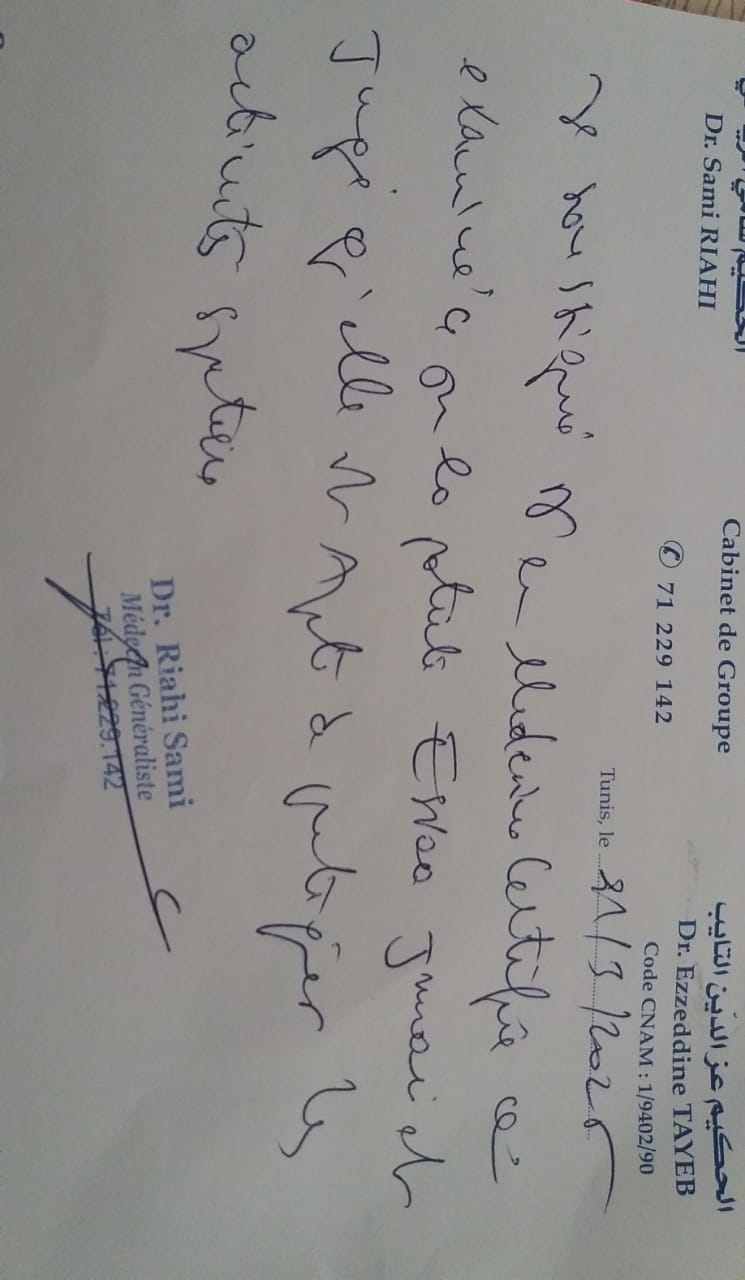 الحكيم عز الدين التايب
Dr. Sami RIAHI
Cabinet de Groupe
Dr. Ezzeddine TAYEB
✆ 71 229 142
Code CNAM : 1/9402/90
Tunis, le 21/3/2025
Je soussigné Dr en Médecine Certifie
examiné ce la patiente et
Jugé qu'elle est Apte à pratiquer les
activités sportives
Dr. Riahi Sami
Médecin Généraliste
Tél. 71.229.142